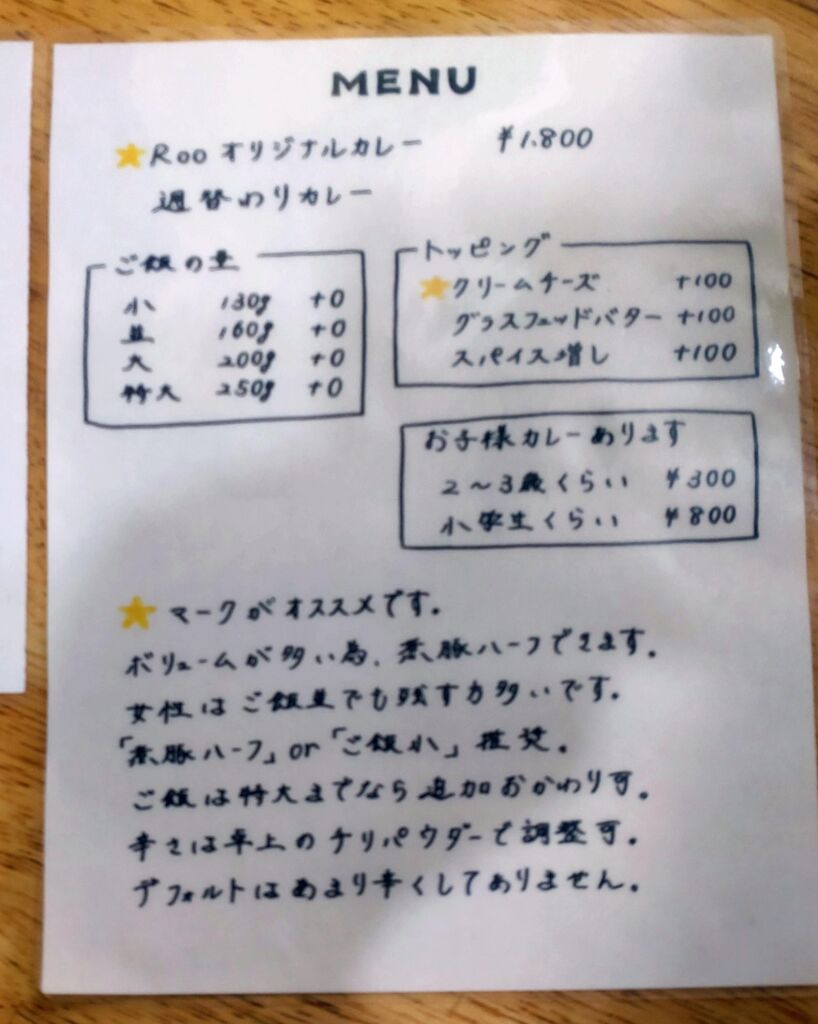 MENU
★ Roo オリジナルカレー ¥1.800
週替わりカレー
ご飯の量
小 130g +0
並 160g +0
大 200g +0
特大 250g +0
トッピング
★クリームチーズ +100
グラスフェッドバター +100
スパイス増し +100
お子様カレーあります
2〜3歳くらい ¥300
小学生くらい ¥800
★ マークがオススメです。
ボリュームが多い為、煮豚ハーフできます。
女性はご飯並でも残す方多いです。
「煮豚ハーフ」or「ご飯小」推奨。
ご飯は特大までなら追加おかわり可。
辛さは卓上のチリパウダーで調整可。
デフォルトはあまり辛くしてありません。